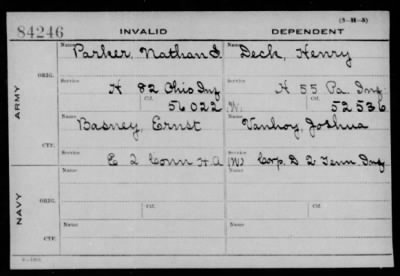 (3-H-5)
84246 INVALID DEPENDENT
Name Parker, Nathan S. Name Deck, Henry
ARMY
ORIG.
Service H 82 Ohio Inf Service H 55 Pa. Inf
Ctf. 56022 (W) Ctf. 52536
Name Basney, Ernst Name Vanhoy, Joshua
CTF.
Service E 2 Conn H.A Service (W) Corp. D 2 Tenn Inf
NAVY
Name Name
ORIG.
Service Ctf. Service Ctf.
Name Name
CTF.